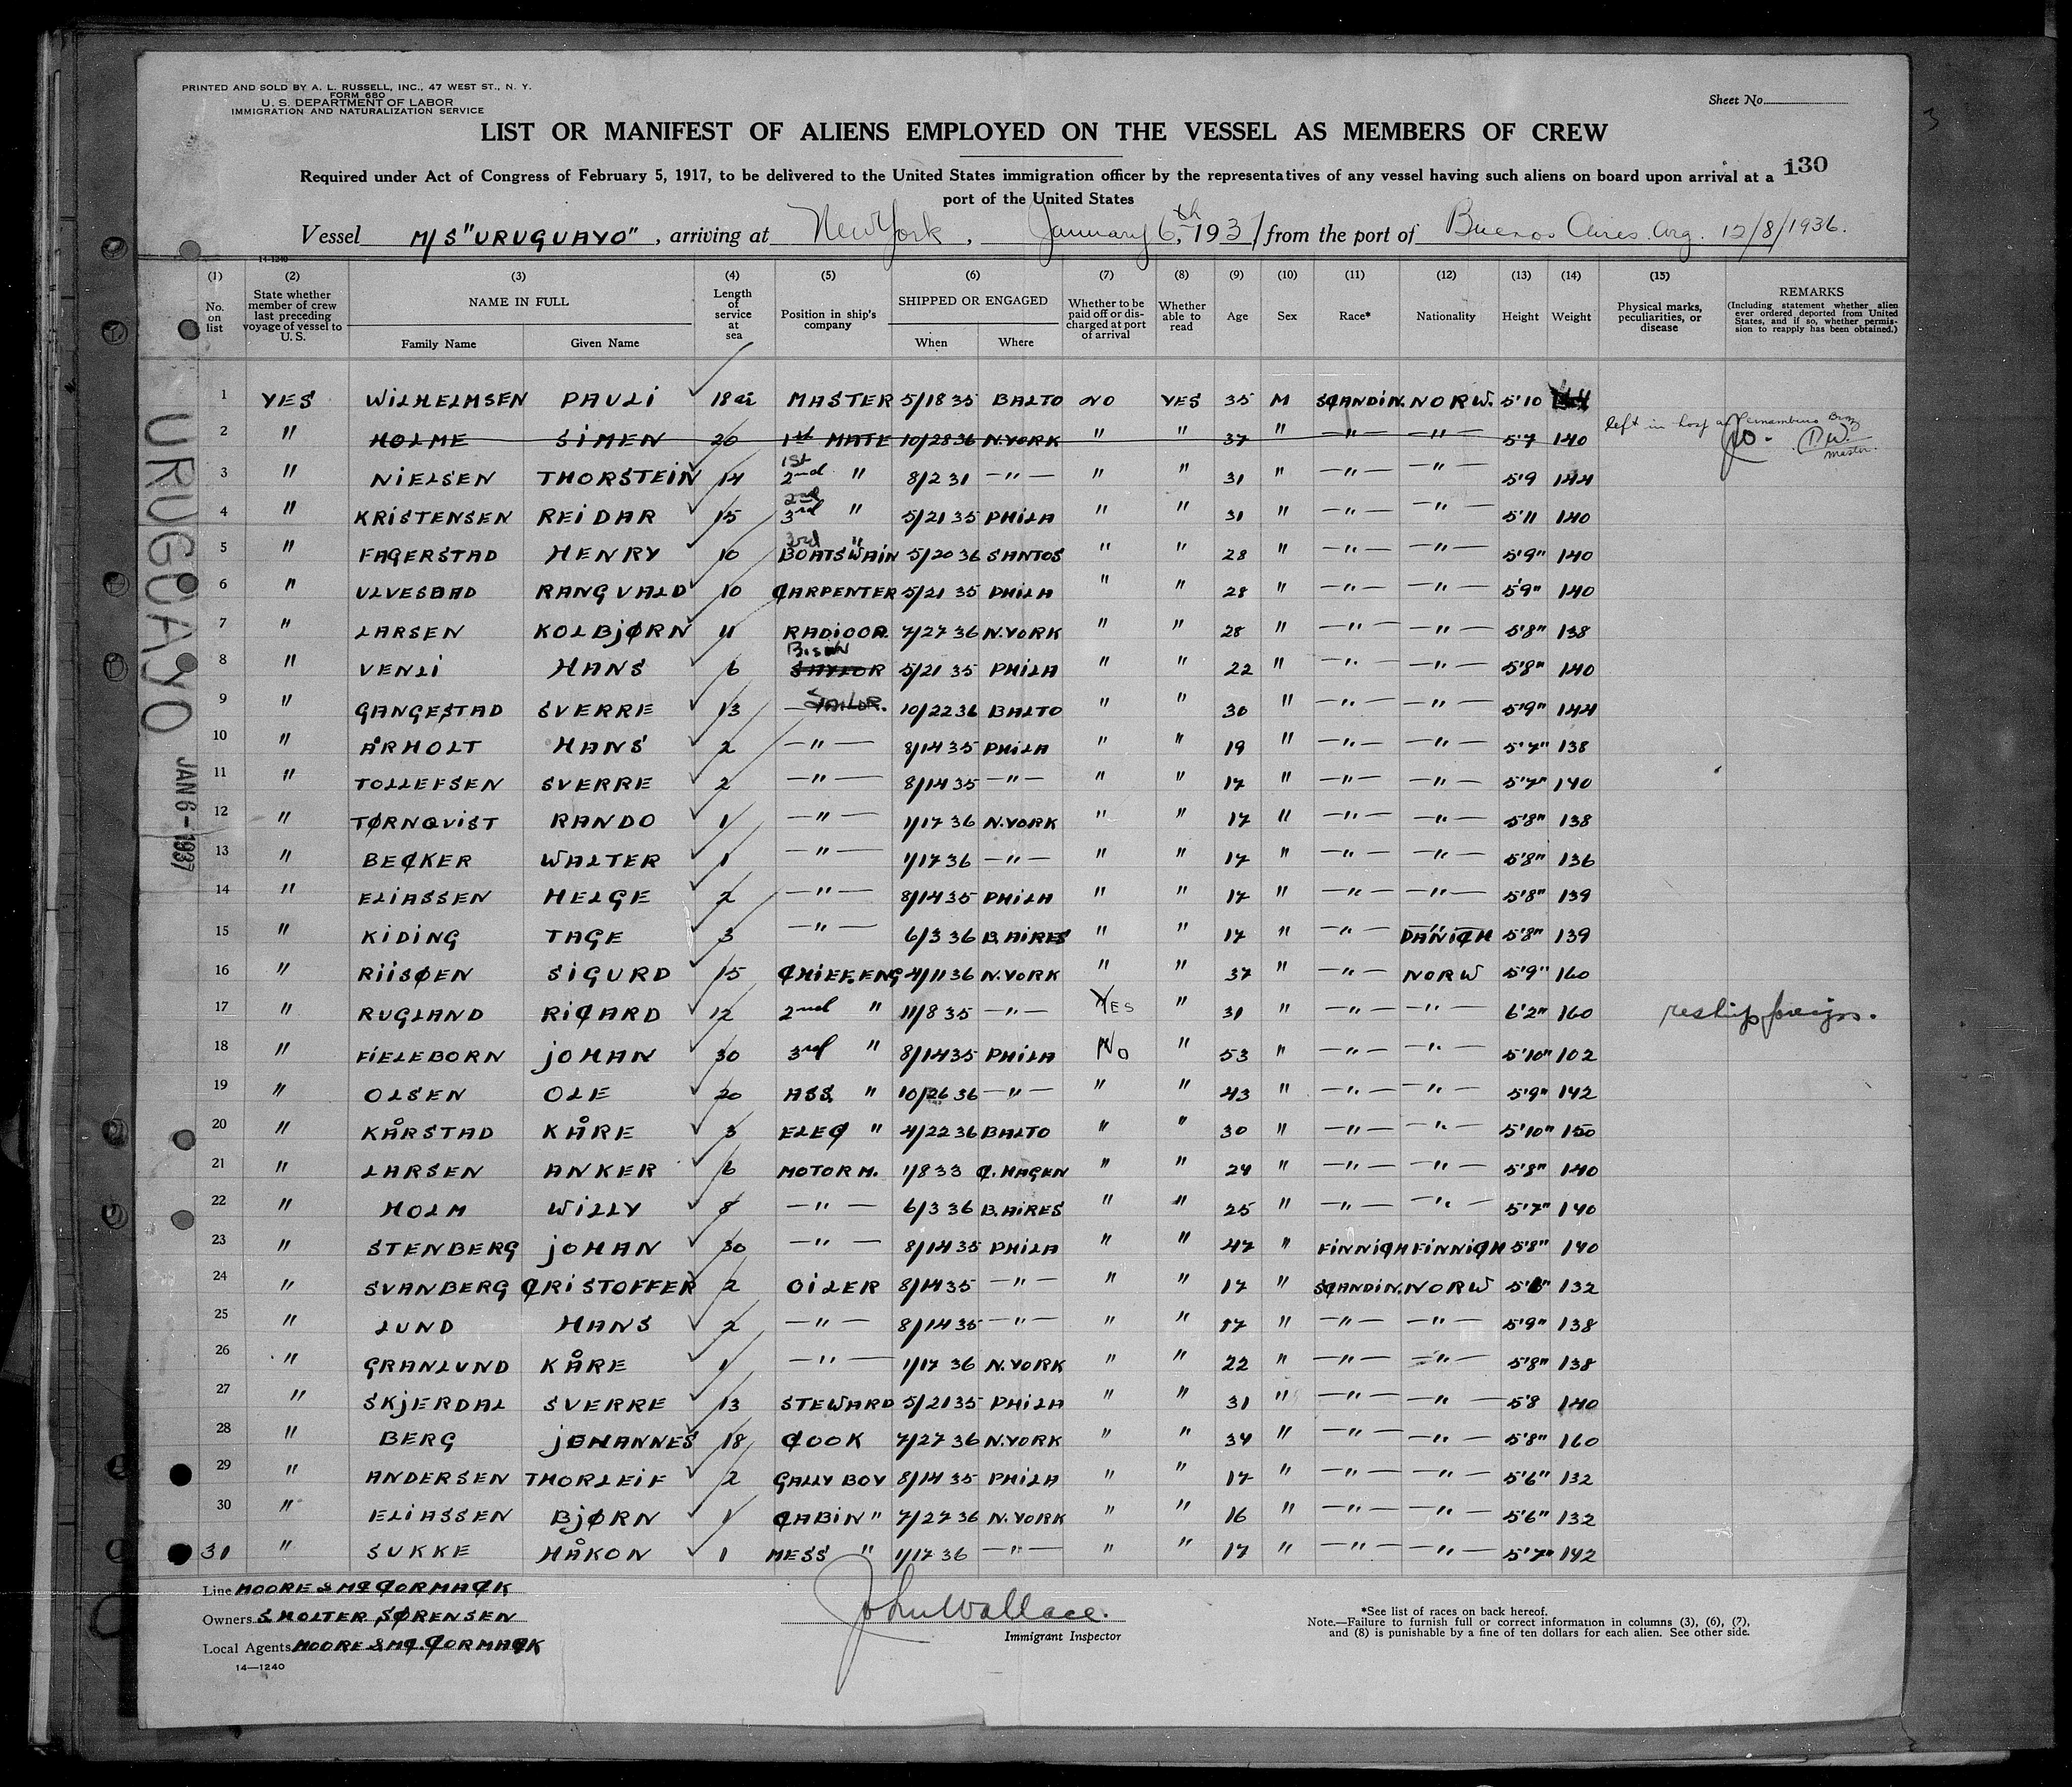 PRINTED AND SOLD BY A. L. RUSSELL, INC., 47 WEST ST., N. Y.
FORM 680
U. S. DEPARTMENT OF LABOR
IMMIGRATION AND NATURALIZATION SERVICE
Sheet No.
3
LIST OR MANIFEST OF ALIENS EMPLOYED ON THE VESSEL AS MEMBERS OF CREW
130
Required under Act of Congress of February 5, 1917, to be delivered to the United States immigration officer by the representatives of any vessel having such aliens on board upon arrival at a
port of the United States
Vessel M/S "URUGUAYO", arriving at New York, January 6th, 1937 from the port of Buenos Aires Arg. 12/8/1936.
14-1240
(1) (2) (3) (4) (5) (6) (7) (8) (9) (10) (11) (12) (13) (14) (15)
No. on list
State whether member of crew last preceding voyage of vessel to U. S.
NAME IN FULL
Family Name Given Name
Length of service at sea
Position in ship's company
SHIPPED OR ENGAGED
When Where
Whether to be paid off or discharged at port of arrival
Whether able to read
Age Sex Race* Nationality Height Weight
Physical marks, peculiarities, or disease
REMARKS
(Including statement whether alien ever ordered deported from United States, and if so, whether permission to reapply has been obtained.)
1 YES WILHELMSEN PAULI 18 MASTER 5/18 35 BALTO NO YES 35 M SCANDIN. NORW. 5'10
2 " HOLME SIMEN 20 1st MATE 10/28 36 N.YORK " " 37 " —"— —"— 5'7 140 left in hosp at Pernambuco Braz P.W. master.
3 " NIELSEN THORSTEIN 14 1st 2nd " 8/2 31 —"— " " 31 " —"— —"— 5'9 144
4 " KRISTENSEN REIDAR 15 2nd 3rd " 5/21 35 PHILA " " 31 " —"— —"— 5'11 140
5 " FAGERSTAD HENRY 10 3rd " BOATSWAIN 5/20 36 SANTOS " " 28 " —"— —"— 5'9" 140
6 " ULVESBAD RANGVALD 10 CARPENTER 5/21 35 PHILA " " 28 " —"— —"— 5'9" 140
7 " LARSEN KOLBJØRN 11 RADIOOP. 7/27 36 N.YORK " " 28 " —"— —"— 5'8" 138
8 " VENLI HANS 6 SAYLOR 5/21 35 PHILA " " 22 " —"— —"— 5'8" 140
9 " GANGESTAD SVERRE 13 SAILOR. 10/22 36 BALTO " " 30 " —"— —"— 5'9" 144
10 " ÅRHOLT HANS 2 —"— 8/14 35 PHILA " " 19 " —"— —"— 5'7" 138
11 " TOLLEFSEN SVERRE 2 —"— 8/14 35 —"— " " 17 " —"— —"— 5'7" 140
12 " TØRNQVIST RANDO 1 —"— 1/17 36 N.YORK " " 17 " —"— —"— 5'8" 138
13 " BECKER WALTER 1 —"— 1/17 36 —"— " " 17 " —"— —"— 5'8" 136
14 " ELIASSEN HELGE 2 —"— 8/14 35 PHILA " " 17 " —"— —"— 5'8" 139
15 " KIDING TAGE 3 —"— 6/3 36 B.AIRES " " 17 " —"— DANICH 5'8" 139
16 " RIISØEN SIGURD 15 CHIEF.ENG 4/11 36 N.YORK " " 37 " —"— NORW 5'9" 160
17 " RUGLAND RICARD 12 2nd " 11/8 35 —"— YES " 31 " —"— —"— 6'2" 160 reship foreign.
18 " FIELEBORN JOHAN 30 3rd " 8/14 35 PHILA No " 53 " —"— —"— 5'10" 102
19 " OLSEN OLE 20 ASS. " 10/26 36 —"— " " 43 " —"— —"— 5'9" 142
20 " KÅRSTAD KÅRE 3 ELEC " 4/22 36 BALTO " " 30 " —"— —"— 5'10" 150
21 " LARSEN ANKER 6 MOTORM. 1/8 33 C.HAGEN " " 24 " —"— —"— 5'8" 140
22 " HOLM WILLY 8 —"— 6/3 36 B.AIRES " " 25 " —"— —"— 5'7" 140
23 " STENBERG JOHAN 30 —"— 8/14 35 PHILA " " 47 " FINNICH FINNICH 5'8" 140
24 " SVANBERG CRISTOFFER 2 OILER 8/14 35 —"— " " 17 " SCANDIN. NORW 132
25 " LUND HANS 2 —"— 8/14 35 —"— " " 17 " —"— —"— 5'9" 138
26 " GRANLUND KÅRE 1 —"— 1/17 36 N.YORK " " 22 " —"— —"— 5'8" 138
27 " SKJERDAL SVERRE 13 STEWARD 5/21 35 PHILA " " 31 " —"— —"— 5'8 140
28 " BERG JOHANNES 18 COOK 7/27 36 N.YORK " " 34 " —"— —"— 5'8" 160
29 " ANDERSEN THORLEIF 2 GALLY BOY 8/14 35 PHILA " " 17 " —"— —"— 5'6" 132
30 " ELIASSEN BJØRN 1 CABIN " 7/27 36 N.YORK " " 16 " —"— —"— 5'6" 132
31 " SUKKE HÅKON 1 MESS " 1/17 36 —"— " " 17 " —"— —"— 5'7" 142
URUGUAYO
JAN 6 - 1937
Line MOORE & Mc CORMACK
Owners S. HOLTER SØRENSEN
Local Agents MOORE & Mc. CORMACK
14—1240
John Wallace.
Immigrant Inspector
*See list of races on back hereof.
Note.—Failure to furnish full or correct information in columns (3), (6), (7),
and (8) is punishable by a fine of ten dollars for each alien. See other side.